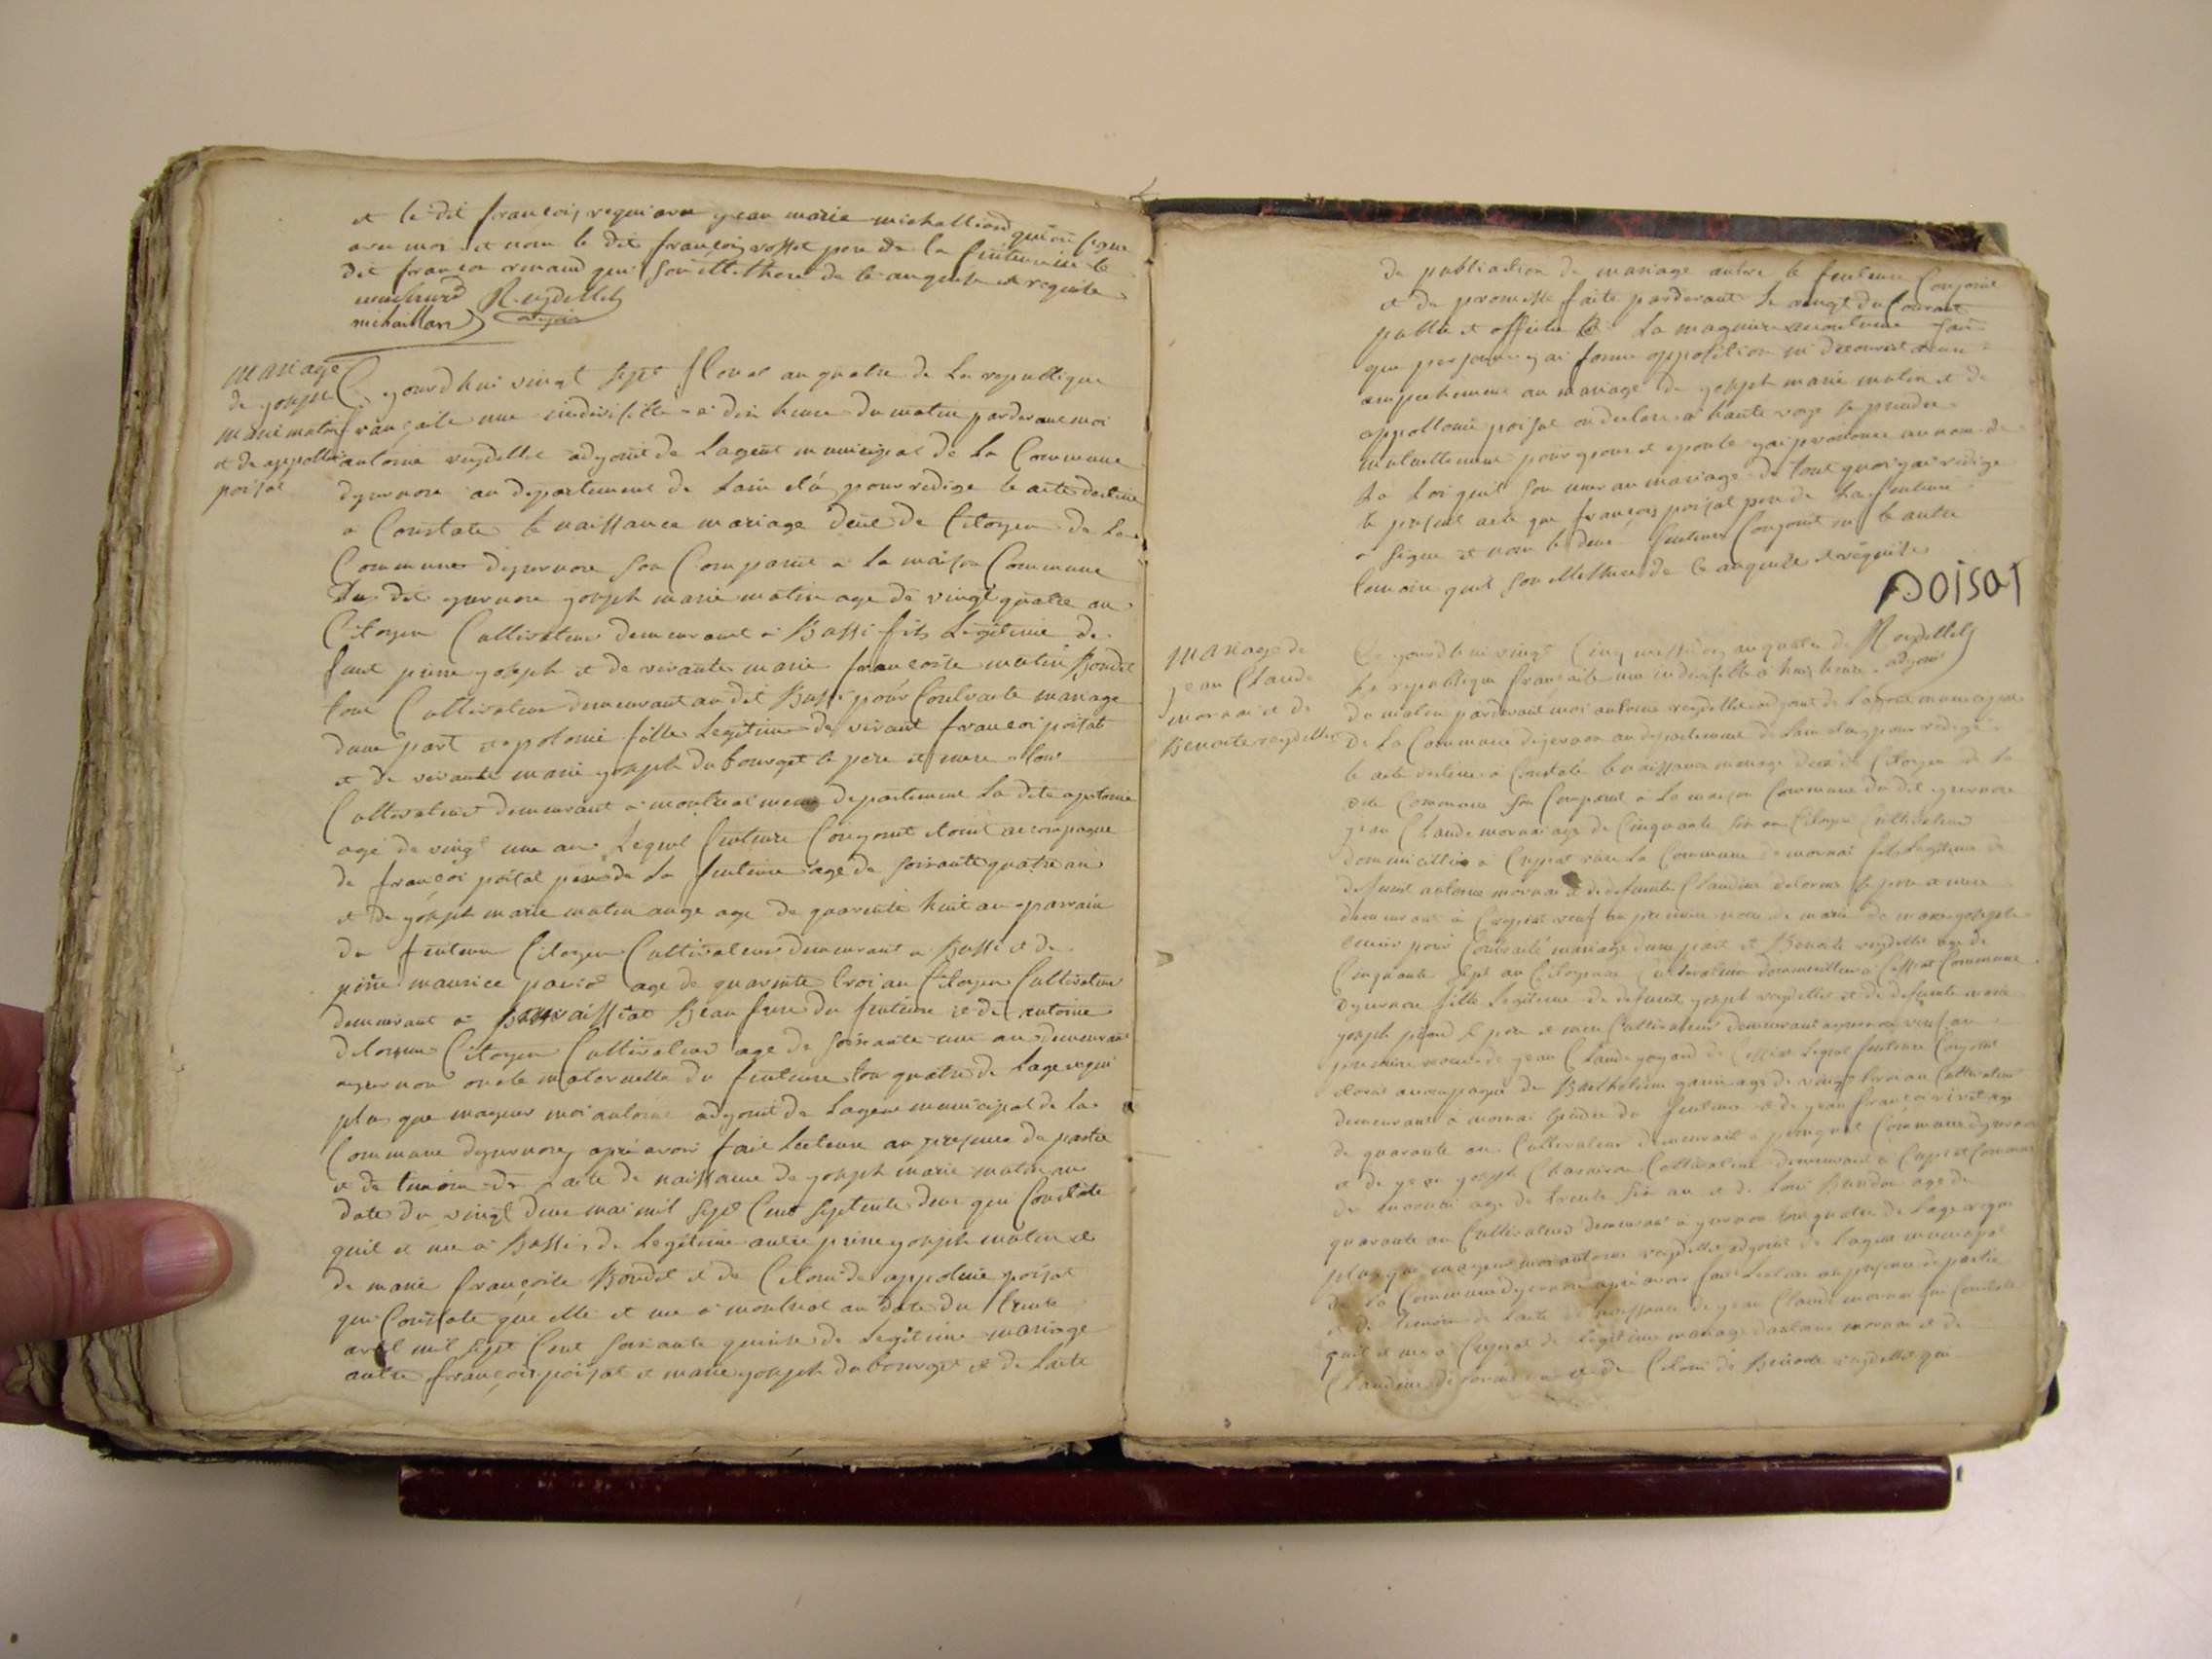 et le dit françois requi avu jean marie michalliard qui on signe
avec moi et non le dit françois rosset pere de la futeure le
dit françoi renaud qui son illethere de le anquete et requite
Reydellet
michaillard adjoin
mariage
de yoseph
marie matin
et de appollonie
poisat
Ce yourdhui vingt sept floreal an quatre de la republique
française une indivisible a dix heure du matin pardevant moi
antoine reydellet adyoint de lagent municipal de la Commune
dyzernore au departement de lain élu pour redige le acte destine
a Constate le naissance mariage decé de Citoyen de la
Commune dyzernore son Comparut a la maison Commune
du dit yzernore yoseph marie matin age de vingt quatre an
Citoyen Cultivateur demeurant a Bussi fils legitime de
funt pierre yoseph et de vivante marie françoise matin Bondet
tout Cultivateur demeurant au dit Bussi pour Contracte mariage
dune part et apolonie fille legitime de vivant françoi poisat
et de vivante marie yoseph du bourget le pere et mere tout
Cultivateur demeurant a montreal meme departement la dite apolonie
age de vingt une an lequel futeure Conyoint etoint acompagne
de françoi poisat pere de la futeure age de soixante quatre an
et de yoseph marie matin ange age de quarente huit an parrain
du futeure Citoyen Cultivateur demeurant a Bussi et de
pierre maurice pariod age de quarente trois an Citoyen Cultivateur
demeurant a Beau frere du futeure et de antoine
delorme Citoyen Cultivateur age de soixante une an demeurant
ayzernore oncle maternelle du futeure tou quatre de lage requi
plus que mayeur moi antoine adyoint de lagent municipal de la
Commune dyzernore, apré avoir fait lecteure an presence de partie
et de temoin de lacte de naissance de yoseph marie matin an
date du vingt deux mai mil sept Cent septente deux qui Constate
quil et né a Bussi de legitime antre pierre yoseph matin et
de marie françoise Bondet et de Celoui de appolonie poisat
qui Constate que elle et né a montreal an date du trente
avril mil sept Cent soixante quinze de legitime mariage
antre françois poisat et marie yoseph du bourget et de lacte
de publication de mariage antre le futeure Conyoint
et de promesse faite pardevant le vingt du Courant
publié et affiché a la maniere acoutume san
que personne y ai forme opposition ni decouvert aucun
ampechement au mariage de yoseph marie matin et de
appollonie poisat on declare a haute voix se prendre
mutuellement pour epoux et epouse yai prononce au nom de
la loi quil son unir an mariage de tout quoi yai redige
le present acte que françois poisat pere de la futeure
a signe et non le deux futeure Conyoint ni le autre
temoin quil son illethere de le anquete et requite
poisat
Reydellet
adyoin
mariage de
jean Claude
mornai et de
Benoite reydellet
Ce yourdhui vingt Cinq messidor an quatre de
la republique française une indivisible a huit heure
du matin pardevant moi antoine reydellet adyoint de lagent municipal
de la Commune dyzernore au departement de lain elu pour redige
le acte destine a Constaté le naissance mariage decé de Citoyen de la
dite Commune son Comparut a la maison Commune du dit yzernore
jean Claude mornai age de Cinquante six an Citoyen Cultivateur
domicillié a Crepiat la Commune de mornai fils legitime de
defunt antoine mornai et de defunte Claudine delorme le pere et mere
demeurant a Crepiat veuf an premiere noce de marie yoseph
pour Contracté mariage dune part et Benoite reydellet age de
Cinquante sept an Citoyenne Cultivateur domicillier a Cessiat Commune
dyzernore fille legitime de defunt yoseph reydellet et de defunte marie
yoseph le pere et mere Cultivateur demeurant ayzernore veuf an
premiere noce de jean Claude goyand de Cessiat lequel futeure Conyoint
etoint acompagne de Barthelemi age de vingt trois an Cultivateur
demeurant a mornai gendre du futeure et de jean françoi age
de quarante an Cultivateur demeurant a Commune dyzernore
et de jean yoseph Cultivateur demeurant a Crepiat Commune
de mornai age de trente six an et de loui age de
quarante an Cultivateur demeurant a yzernore tou quatre de lage requi
plus que mayeur moi antoine reydellet adyoint de lagent municipal
de la Commune dyzernore apré avoir fait lecture an presence de partie
et de temoin de lacte de naissance de jean Claude mornai qui Constate
quil et né a Crepiat de legitime mariage dantoine mornai et de
Claudine delorme et de Celoui de Benoite reydellet qui